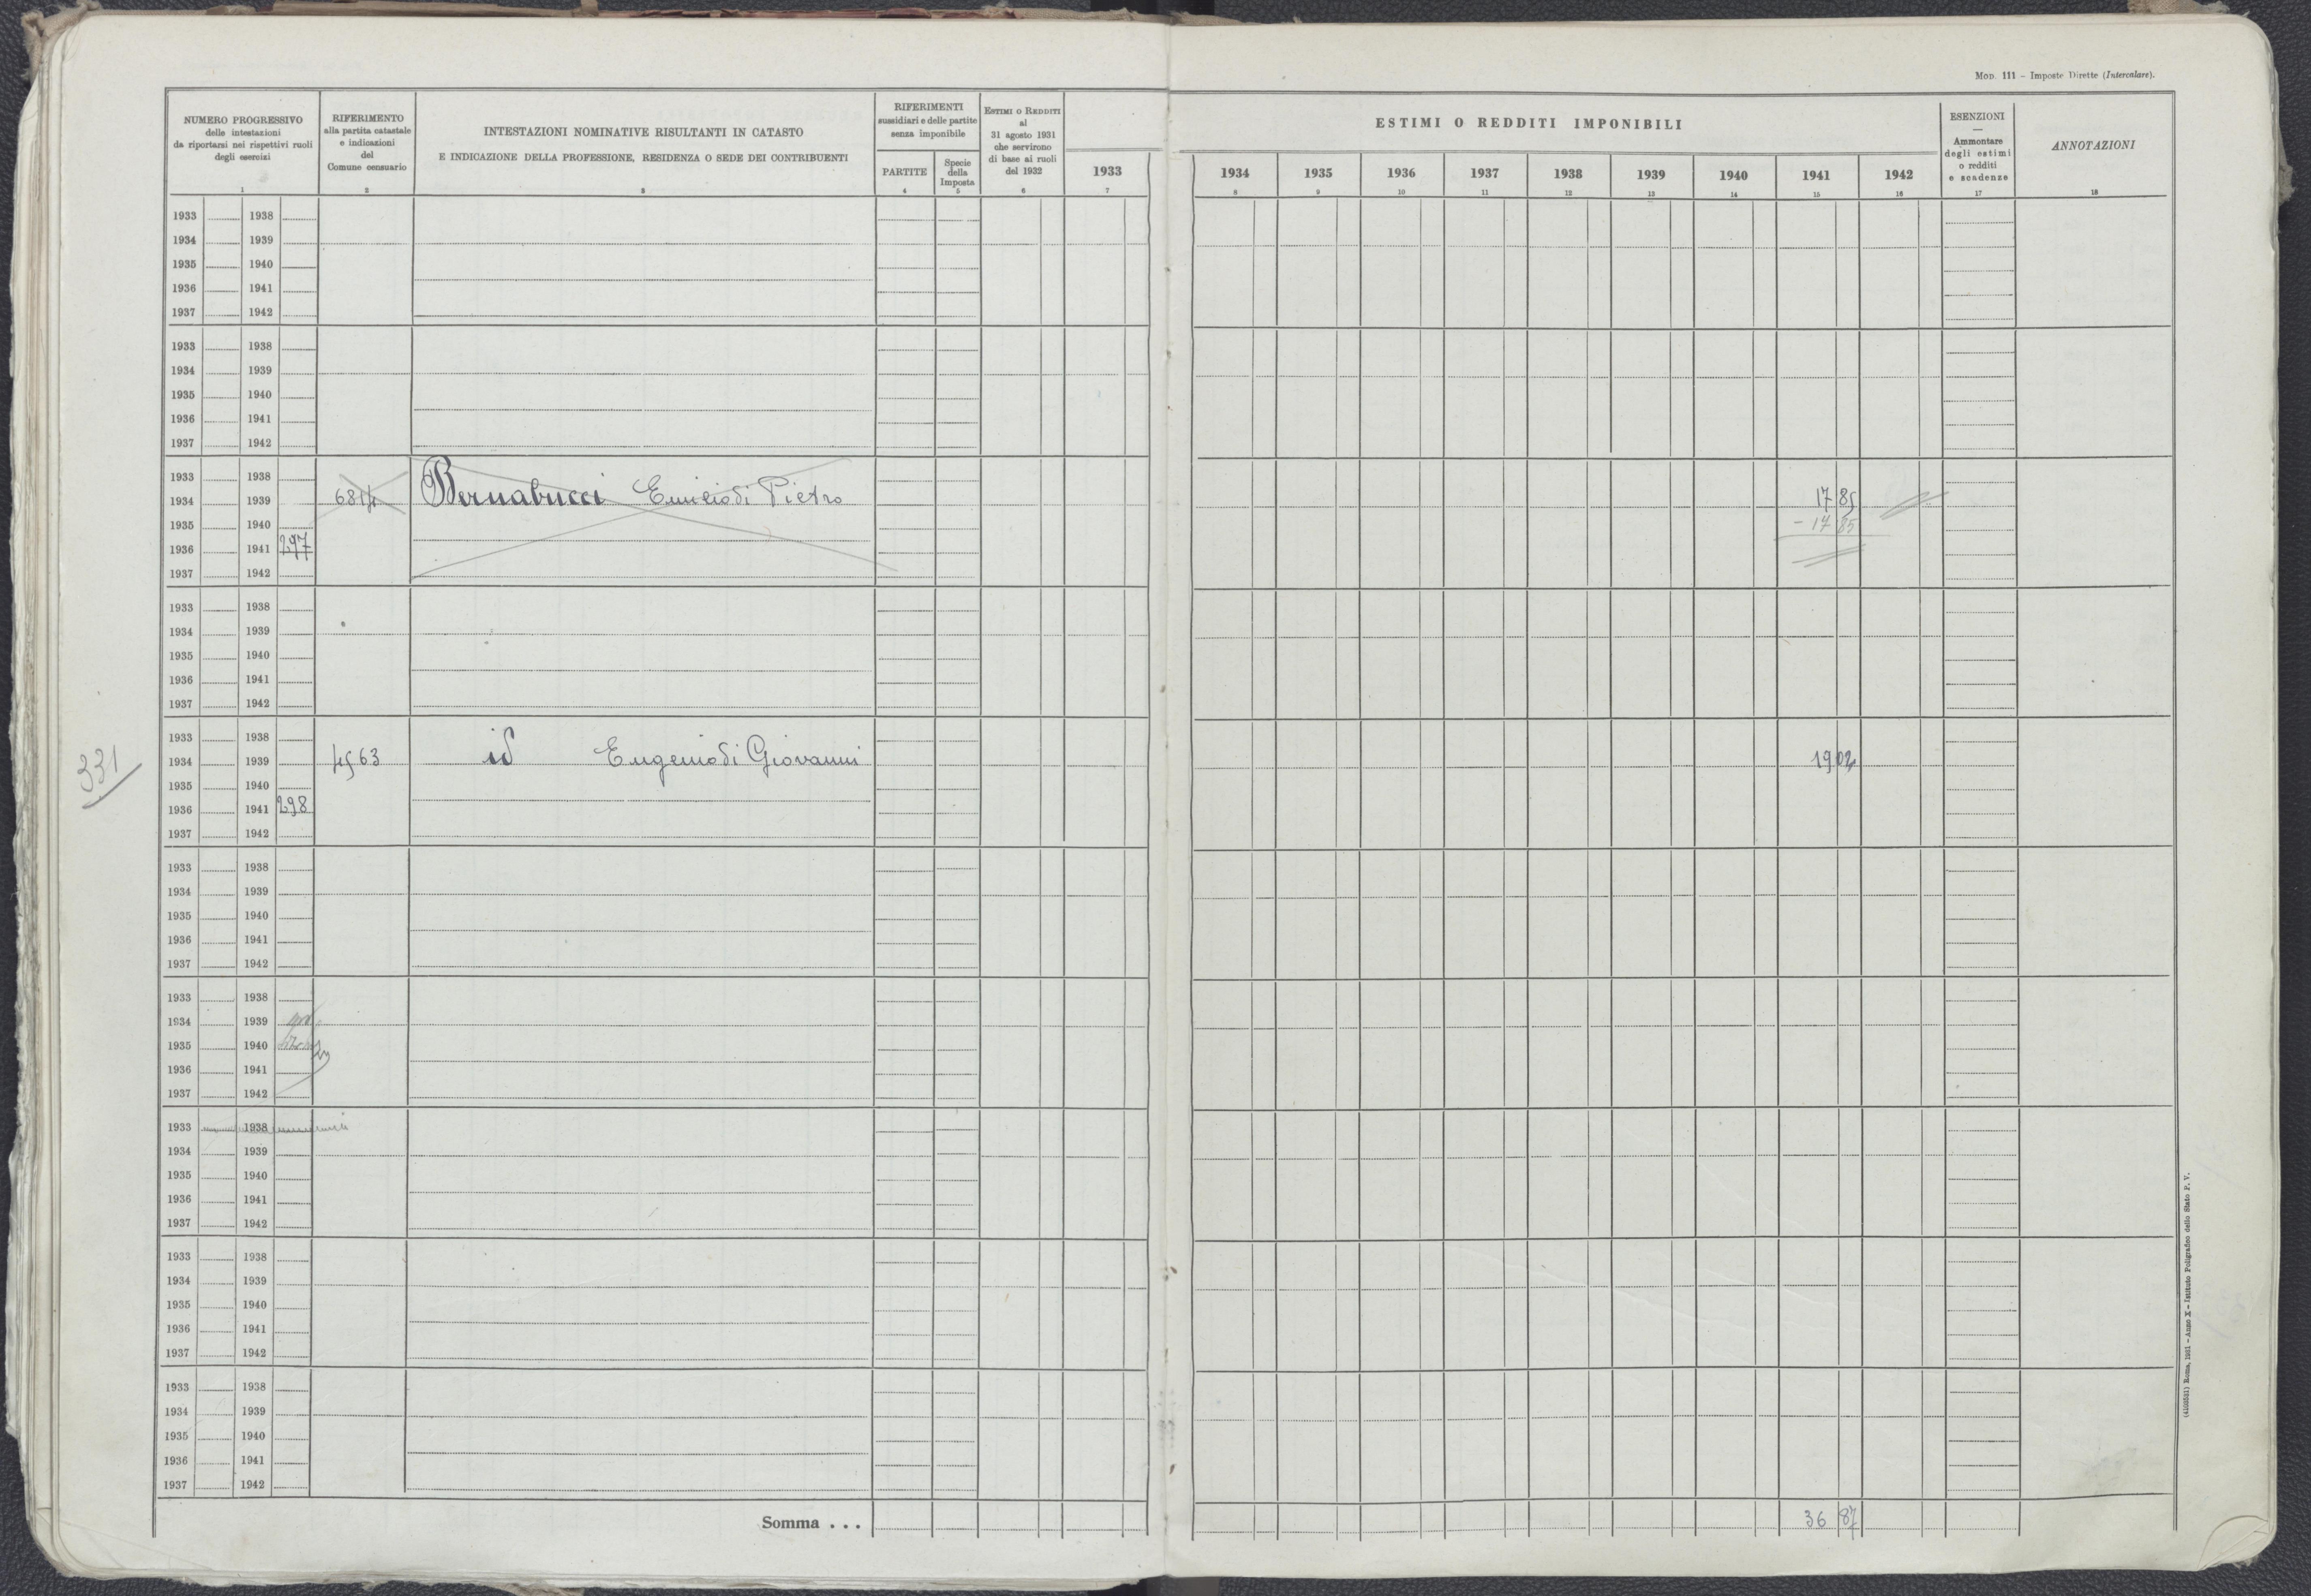 MOD. 111 – Imposte Dirette (Intercalare).
NUMERO PROGRESSIVO
delle intestazioni
da riportarsi nei rispettivi ruoli
degli esercizi
1
RIFERIMENTO
alla partita catastale
e indicazioni
del
Comune censuario
2
INTESTAZIONI NOMINATIVE RISULTANTI IN CATASTO
E INDICAZIONE DELLA PROFESSIONE, RESIDENZA O SEDE DEI CONTRIBUENTI
3
RIFERIMENTI
sussidiari e delle partite
senza imponibile
PARTITE
4
Specie
della
Imposta
5
ESTIMI O REDDITI
al
31 agosto 1931
che servirono
di base ai ruoli
del 1932
6
ESTIMI O REDDITI IMPONIBILI
1933 1934 1935 1936 1937 1938 1939 1940 1941 1942
7 8 9 10 11 12 13 14 15 16
ESENZIONI
—
Ammontare
degli estimi
o redditi
e scadenze
17
ANNOTAZIONI
18
1933 1938
1934 1939
1935 1940
1936 1941
1937 1942
1933 1938
1934 1939
1935 1940
1936 1941
1937 1942
1933 1938
1934 1939 6814 Bernabucci Emilio di Pietro 17 85
1935 1940 - 17 85
1936 1941 297
1937 1942
1933 1938
1934 1939
1935 1940
1936 1941
1937 1942
331
1933 1938
1934 1939 4563 id Eugenio di Giovanni 19 02
1935 1940
1936 1941 298
1937 1942
1933 1938
1934 1939
1935 1940
1936 1941
1937 1942
1933 1938
1934 1939
1935 1940
1936 1941
1937 1942
1933 1938
1934 1939
1935 1940
1936 1941
1937 1942
1933 1938
1934 1939
1935 1940
1936 1941
1937 1942
1933 1938
1934 1939
1935 1940
1936 1941
1937 1942
Somma . . . 36 87
Roma, 1931 – Anno X – Istituto Poligrafico dello Stato P. V.